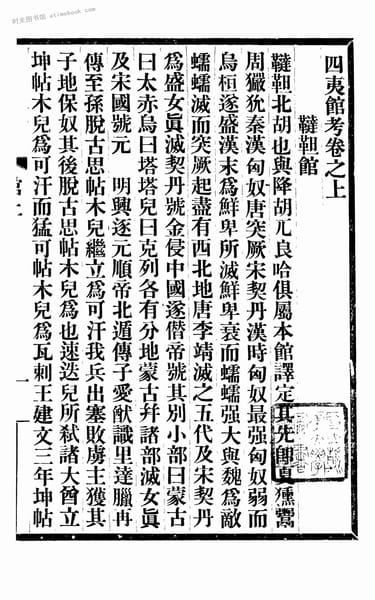 时光图书馆 stimebook.com
四夷館考卷之上
韃靼館
韃靼北胡也與降胡兀良哈俱屬本館譯定其先卽夏獯鬻
周玁狁秦漢匈奴唐突厥宋契丹漢時匈奴最强匈奴弱而
烏桓遂盛漢末爲鮮卑所滅鮮卑衰而蠕蠕强大與魏爲敵
蠕蠕滅而突厥起盡有西北地唐李靖滅之五代及宋契丹
爲盛女眞滅契丹號金侵中國遂僭帝號其別小部曰蒙古
曰太赤烏曰塔塔兒曰克列各有分地蒙古幷諸部滅女眞
及宋國號元 明興逐元順帝北遁傳子愛猷識里達臘冉
傳至孫脫古思帖木兒繼立爲可汗我兵出塞敗虜主獲其
子地保奴其後脫古思帖木兒爲也速迭兒所弑諸大酋立
坤帖木兒爲可汗而猛可帖木兒爲瓦剌王建文三年坤帖
一